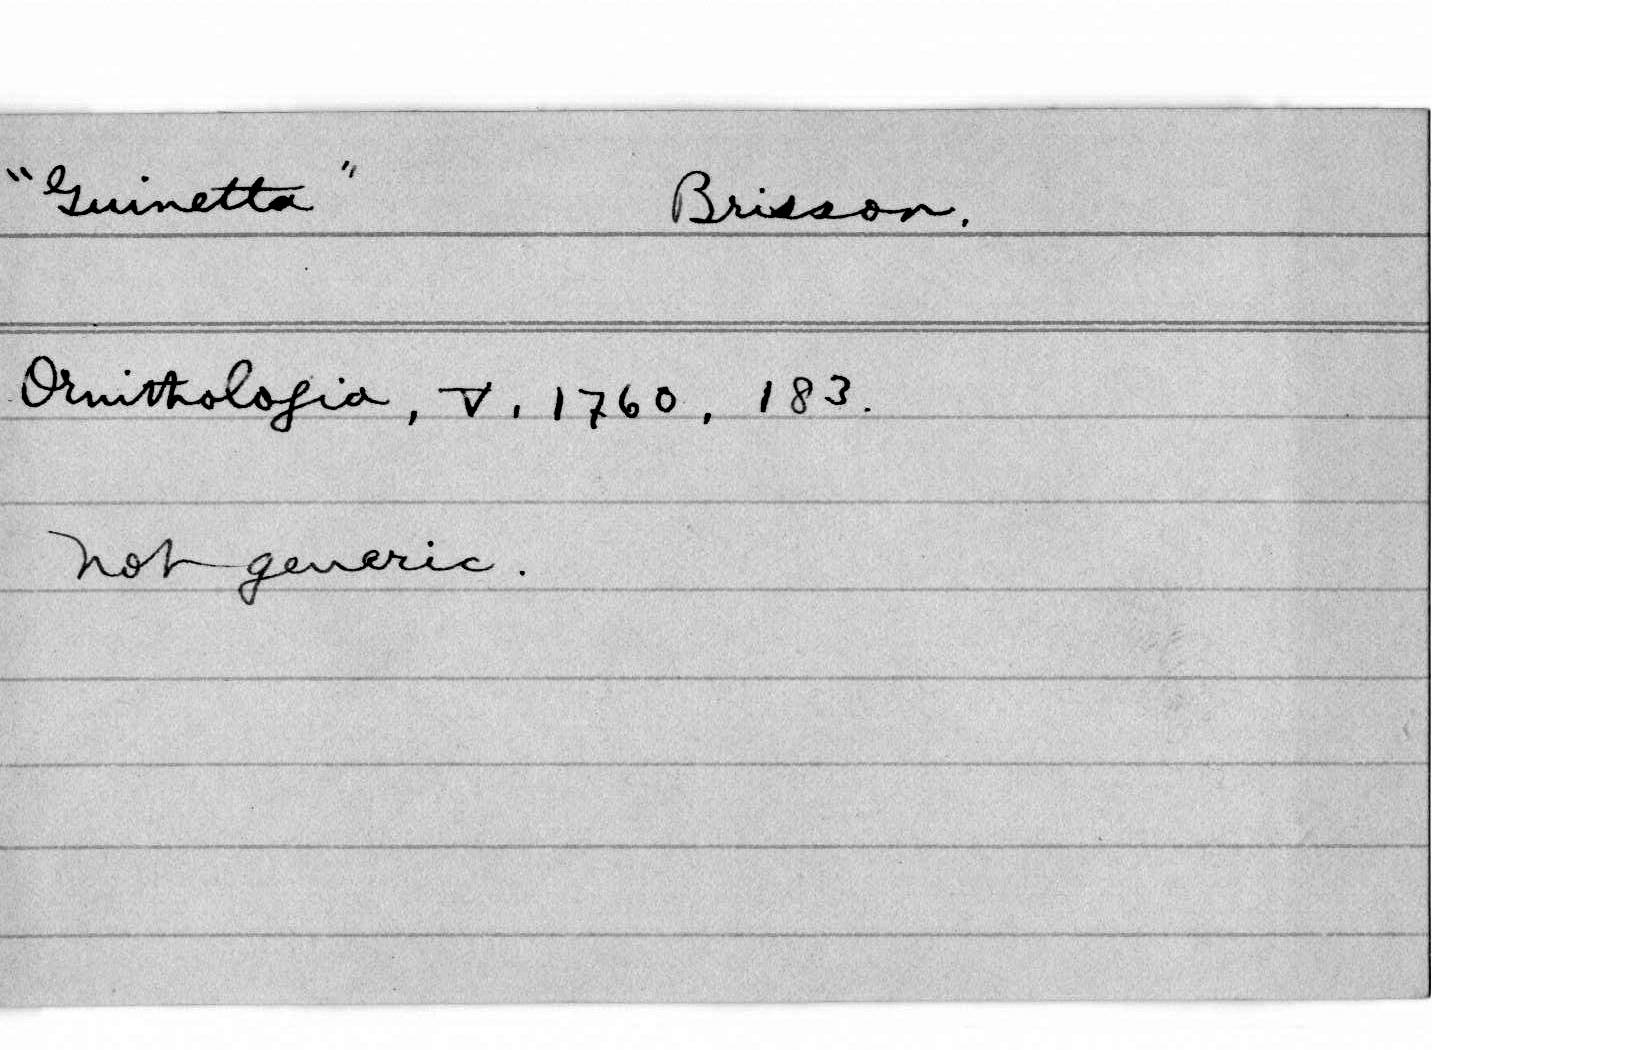 "Guinetta" Brisson.
Ornithologia, V, 1760, 183.
Not generic.